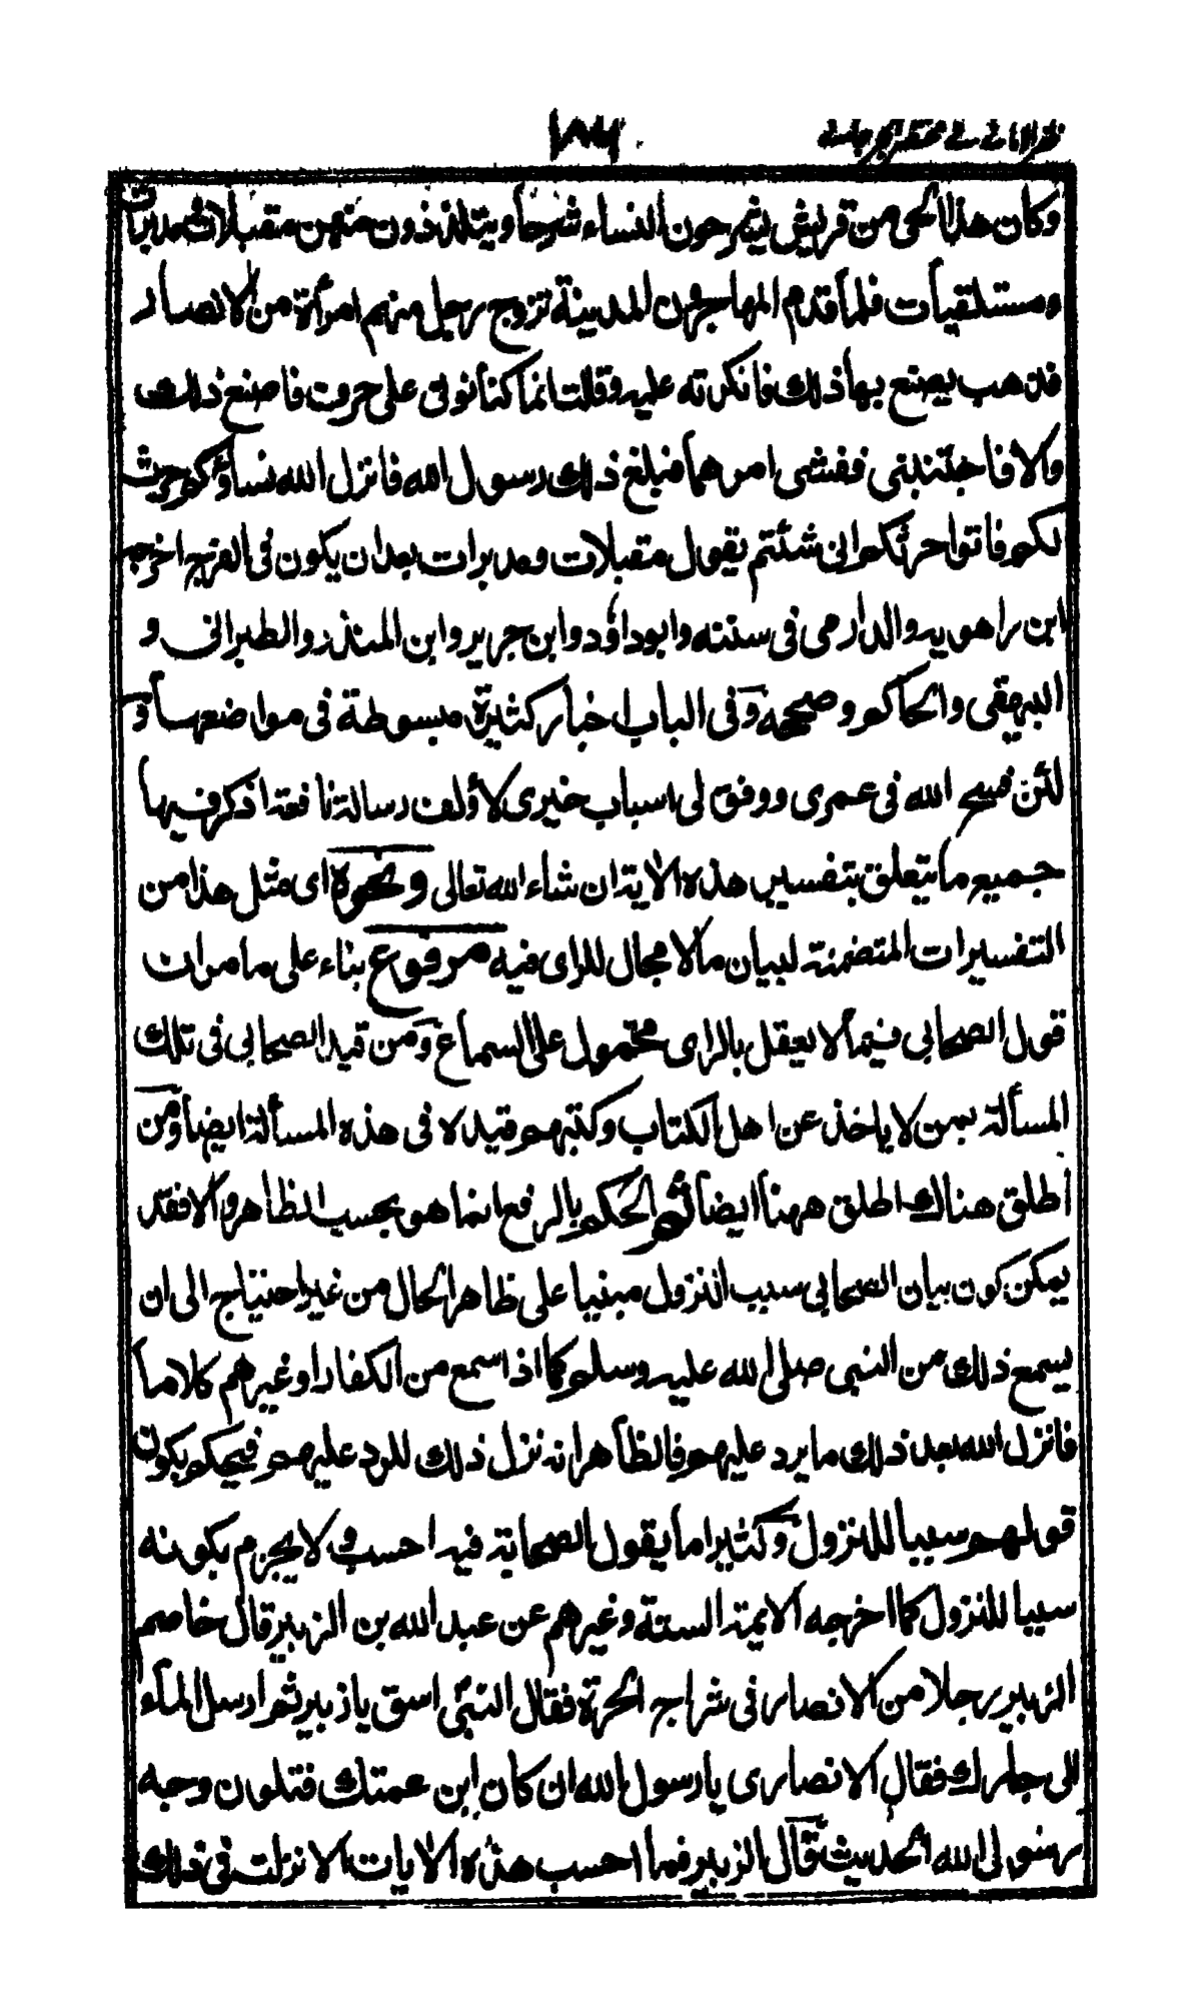 ظفر الاماني في مختصر الجرجاني
١٨٦
وكان هذا الحي من قريش يشرحون النساء شرحا ويتلذذون منهن مقبلات ومدبرات
ومستلقيات فلما قدم المهاجرون المدينة تزوج رجل منهم امرأة من الانصار
فذهب يصنع بها ذلك فانكرته عليه وقالت انما كنا نوتى على حرف فاصنع ذلك
والا فاجتنبني ففشى امرهما فبلغ ذلك رسول الله فانزل الله نساؤكم حرث
لكم فاتوا حرثكم انى شئتم يقول مقبلات ومدبرات بعد ان يكون في الفرج اخرجه
ابن راهويه والدارمي في سننه وابو داؤد وابن جرير وابن المنذر والطبراني و
البيهقي والحاكم وصححه وفي الباب اخبار كثيرة مبسوطة في مواضعها و
لئن فسح الله في عمري ووفق لي اسباب خيري لأولف رسالة نافعة اذكر فيها
جميع ما يتعلق بتفسير هذه الاية ان شاء الله تعالى ونحوه اى مثل هذا من
التفسيرات المتضمنة لبيان مالا مجال للراى فيه مرفوع بناء على ما مر ان
قول الصحابي فيما لا يعقل بالراى محمول على السماع ومن قيد الصحابي في تلك
المسألة بمن لا ياخذ عن اهل الكتاب وكتبهم قيده في هذه المسألة ايضا ومن
اطلق هناك اطلق ههنا ايضا ثم الحكم بالرفع انما هو بحسب الظاهر والا فقد
يمكن كون بيان الصحابي سبب النزول مبنيا على ظاهر الحال من غير احتياج الى ان
يسمع ذلك من النبي صلى الله عليه وسلم كما اذا سمع من الكفار او غيرهم كلاما
فانزل الله بعد ذلك ما يرد عليهم فالظاهر انه نزل ذلك للرد عليهم فيحكم بكون
قولهم سببا للنزول وكثيرا ما يقول الصحابة فيه احسب ولا يجزم بكونه
سببا للنزول كما اخرجه الايمة الستة وغيرهم عن عبد الله بن الزبير قال خاصم
الزبير رجلا من الانصار في شراج الحرة فقال النبي اسق يا زبير ثم ارسل الماء
الى جارك فقال الانصاري يا رسول الله ان كان ابن عمتك فتلون وجه
رسول الله الحديث قال الزبير فما احسب هذه الايات الا نزلت في ذلك